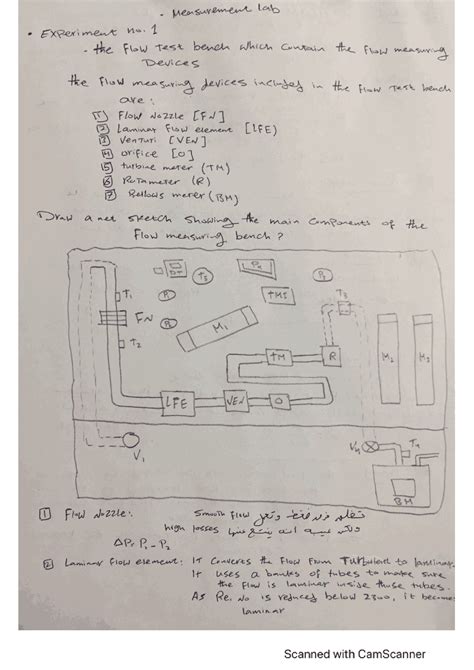 - Measurement lab
• Experiment no. 1
- the flow test bench which contain the flow measuring
Devices
the flow measuring devices included in the flow test bench
are:
1 Flow Nozzle [FN]
2 Laminar Flow element [LFE]
3 Venturi [VEN]
4 orifice [O]
5 turbine meter (TM)
6 Rotameter (R)
7 Bellows meter (BM)
Draw a net sketch showing the main components of the
Flow measuring bench?
DT
T3
P4
T1
TMI
T3
FN
M1
T2
TM
R
M2
LFE
VEN
O
V1
T4
BM
1 Flow Nozzle:
Smooth flow
high losses
ΔP, P1 - P2
2 Laminar Flow element: IT Converes the Flow From Turbulent to laminar.
It uses a of tubes to make sure
the Flow is laminar inside those tubes.
As Re. No is reduced below 2300, it become
laminar
Scanned with CamScanner